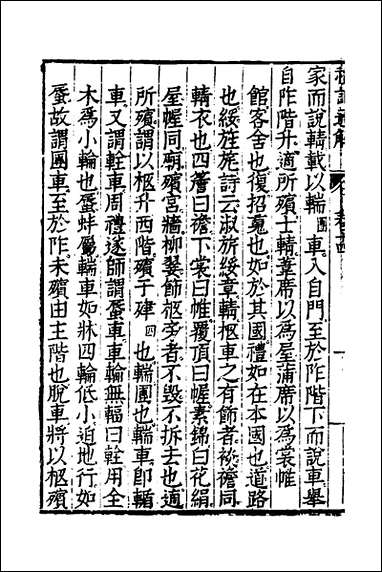 禮記通解
家而說輤載以輲車入自門至於阼階下而說車舉
自阼階升適所殯士輤葦席以爲屋蒲席以爲裳帷
館客舍也復招䰟也如於其國禮如在本國也道路
也綏旌旄詩云淑旂綏章輤柩車之有飾者裧襜同
輤衣也四簷曰襜下裳曰帷覆頂曰幄素錦白花絹
屋幄同廟殯宮牆柳翣飾柩旁者不毀不拆去也適
所殯謂以柩升西階殯于肂四也輲團也輲車卽輴
車又謂輇車周禮遂師謂蜃車車輪無輻曰輇用全
木爲小輪也蜃蚌屬輲車如牀四輪低小迫地行如
蜃故謂團車至於阼未殯由主階也脫車將以柩殯